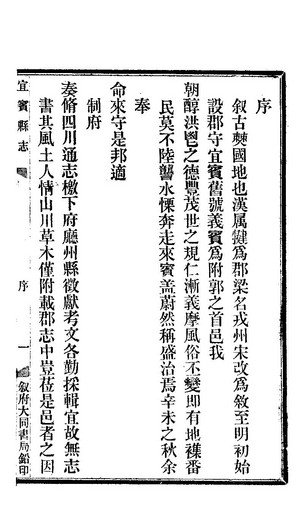 序
叙古僰國地也漢属犍爲郡梁名戎州末改爲敘至明初始
設郡守宜賓舊號義賓爲附郭之首邑我
朝醇洪鬯之德豐茂世之規仁漸義摩風俗不變即有地襍番
民莫不陸讋水慄奔走來賓蓋蔚然稱盛治焉辛未之秋余
奉
命來守是邦適
制府
奏脩四川通志檄下府廳州縣徵獻考文各勤採輯宜故無志
書其風土人情山川草木僅附載郡志中豈莅是邑者之因
宜賓縣志
序
一
叙府大同書局鉛印